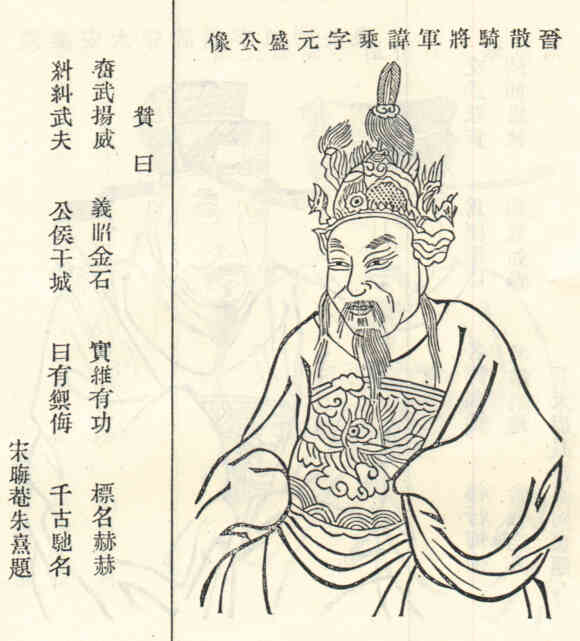 晉散騎將軍諱乘字元盛公像
贊曰
奮武揚威 義昭金石 實維有功 標名赫赫
糾糾武夫 公侯干城 曰有禦侮 千古馳名
宋晦菴朱熹題